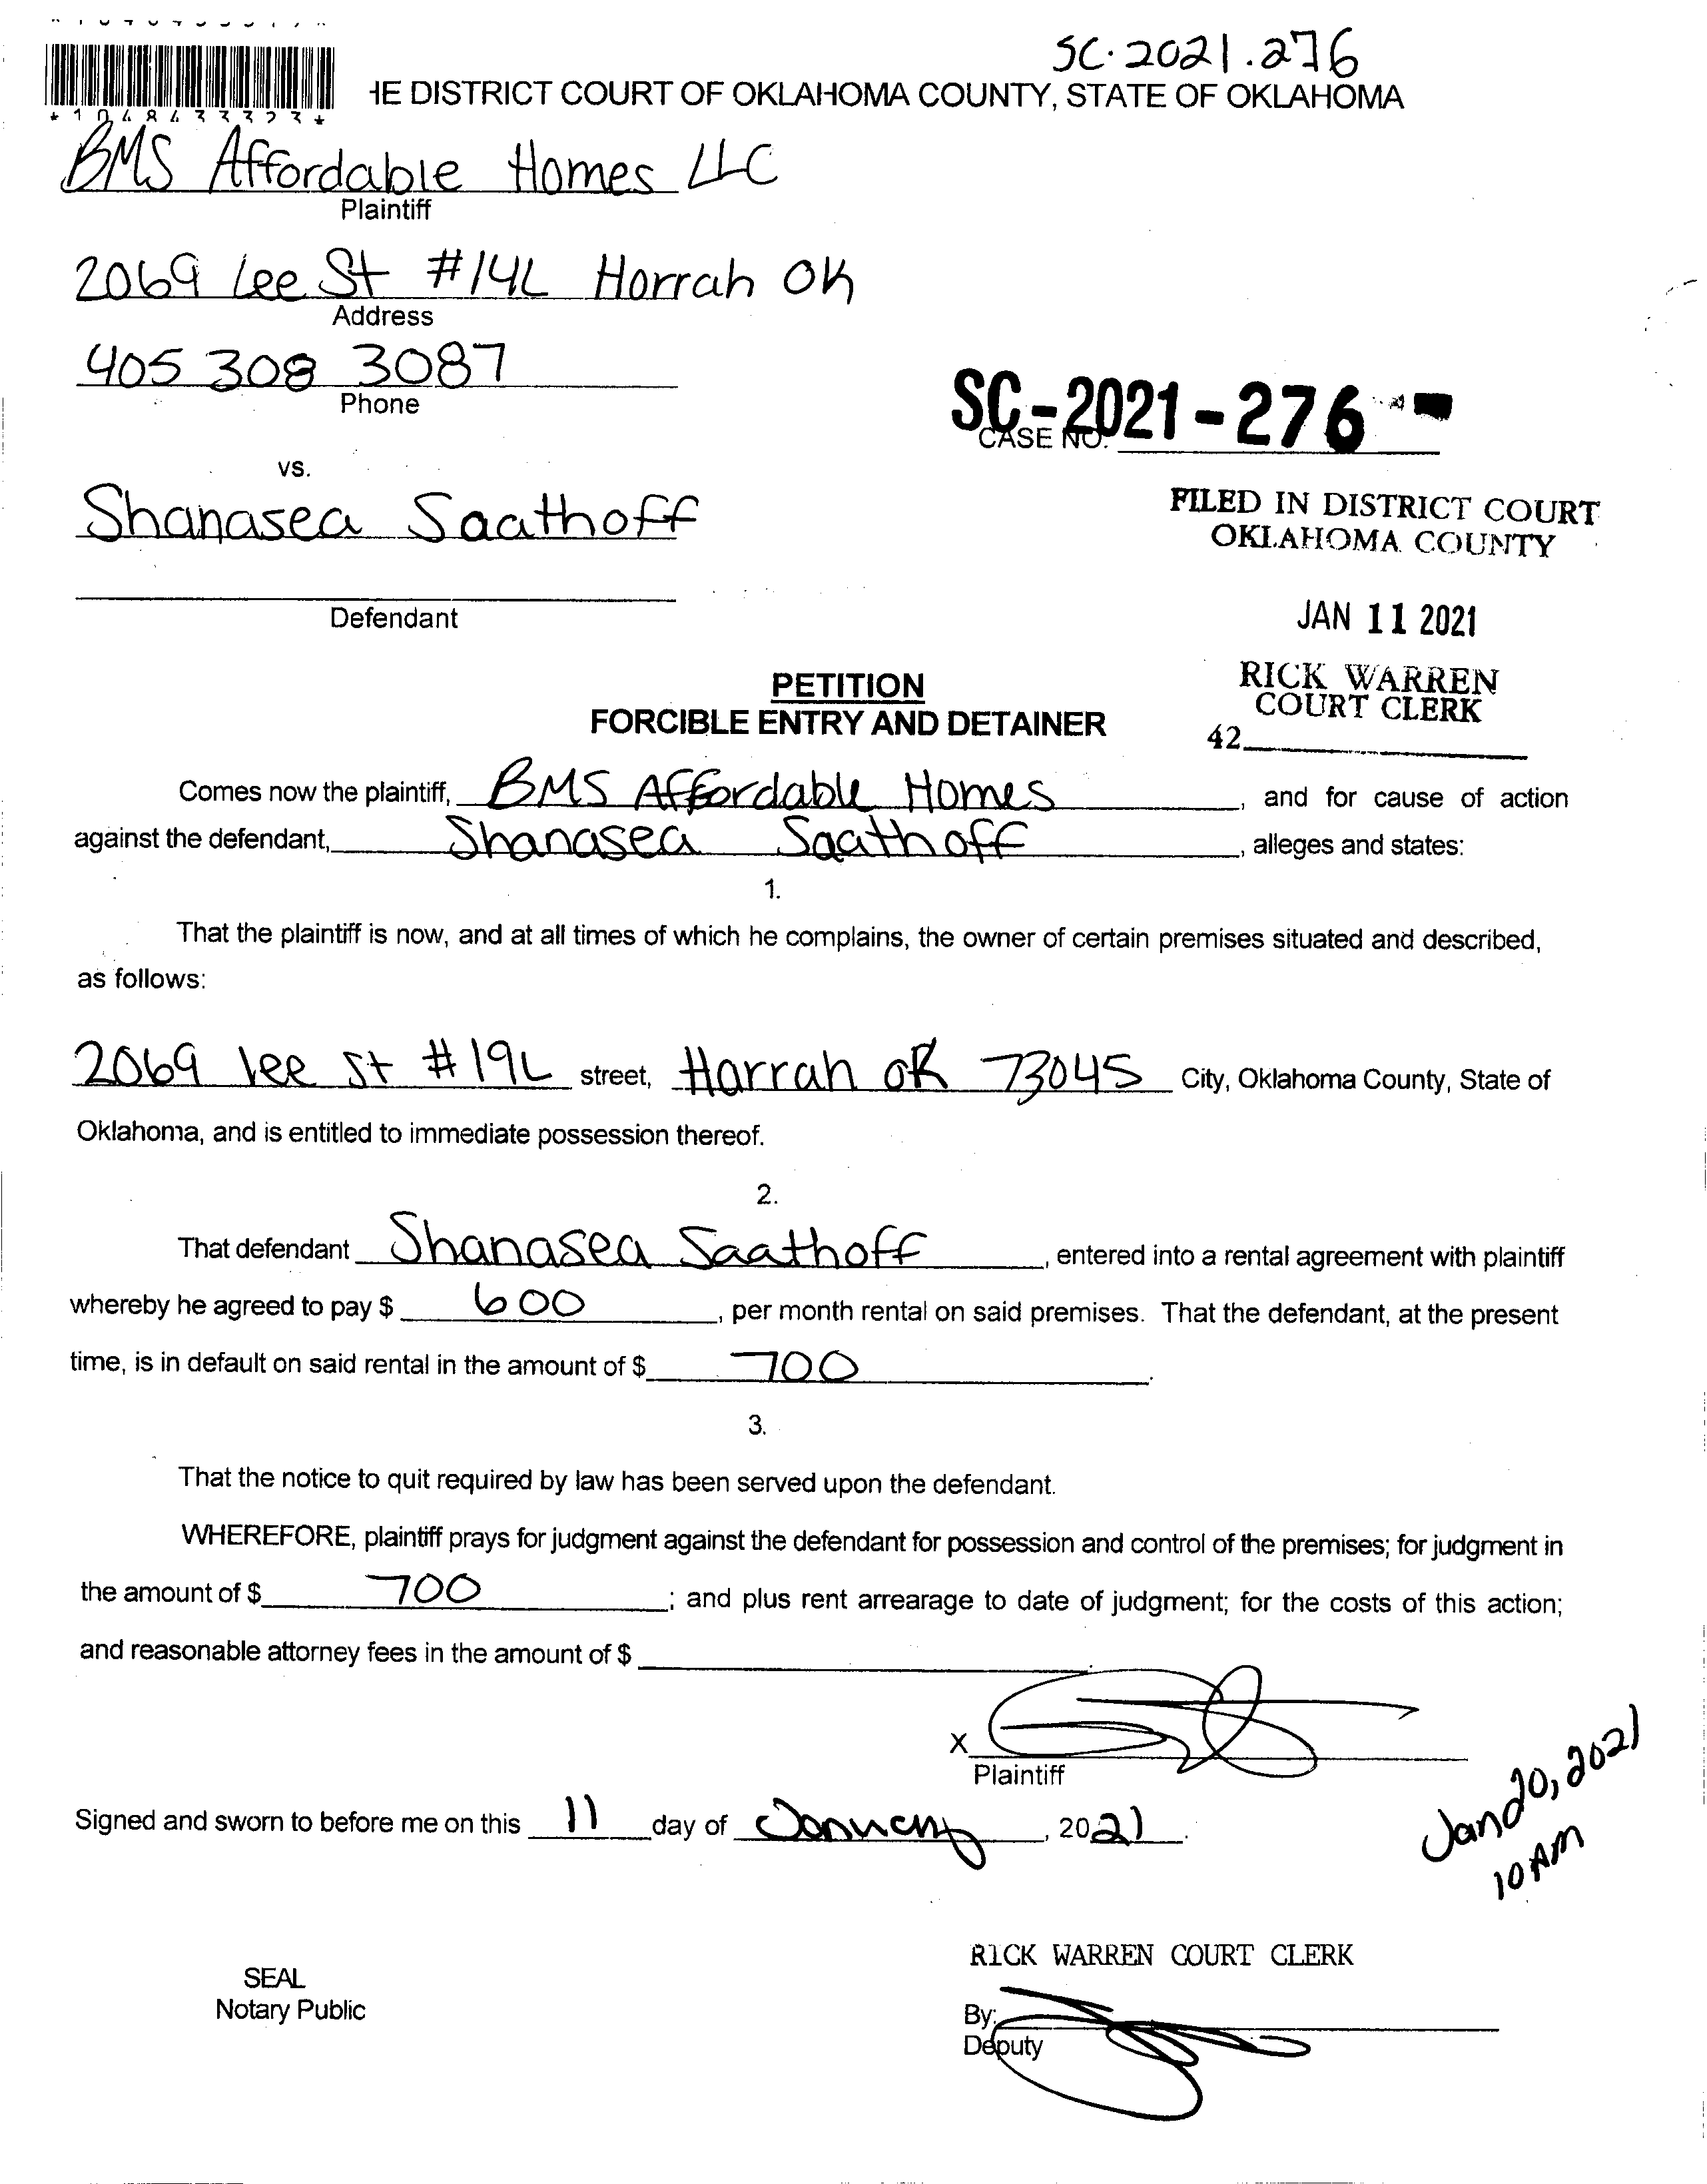 SC-2021-276
HE DISTRICT COURT OF OKLAHOMA COUNTY, STATE OF OKLAHOMA
BMS Affordable Homes LLC
Plaintiff
2069 Lee St #14L Harrah OK
Address
405 308 3087
Phone
SC-2021-276
CASE NO.
vs.
Shanasea Saathoff
FILED IN DISTRICT COURT
OKLAHOMA COUNTY
Defendant
JAN 11 2021
RICK WARREN
COURT CLERK
42
PETITION
FORCIBLE ENTRY AND DETAINER
Comes now the plaintiff, BMS Affordable Homes, and for cause of action
against the defendant, Shanasea Saathoff, alleges and states:
1.
That the plaintiff is now, and at all times of which he complains, the owner of certain premises situated and described,
as follows:
2069 Lee St #19L street, Harrah OK 73045 City, Oklahoma County, State of
Oklahoma, and is entitled to immediate possession thereof.
2.
That defendant Shanasea Saathoff, entered into a rental agreement with plaintiff
whereby he agreed to pay $ 600, per month rental on said premises. That the defendant, at the present
time, is in default on said rental in the amount of $ 700.
3.
That the notice to quit required by law has been served upon the defendant.
WHEREFORE, plaintiff prays for judgment against the defendant for possession and control of the premises; for judgment in
the amount of $ 700; and plus rent arrearage to date of judgment; for the costs of this action;
and reasonable attorney fees in the amount of $
X
Plaintiff
Signed and sworn to before me on this 11 day of January, 2021.
Jan 20, 2021
10 AM
RICK WARREN COURT CLERK
SEAL
Notary Public
By:
Deputy